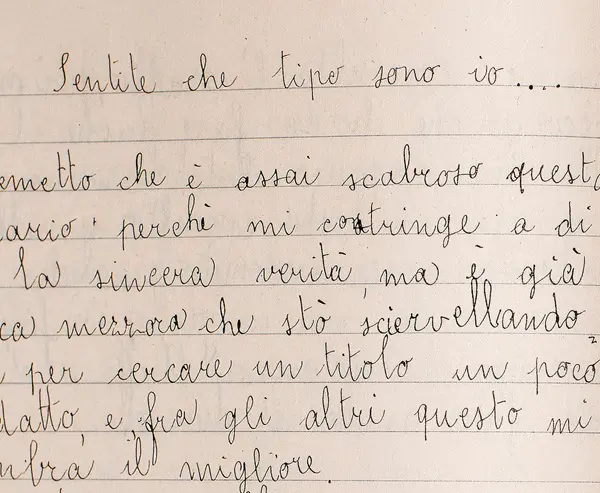 Sentite che tipo sono io....
emetto che è assai scabroso quest
ario perchè mi costringe a di
la sincera verità, ma è già
ca mezzora che stò sciervellando
per cercare un titolo un poco
datto, e, fra gli altri questo mi
mbra il migliore.